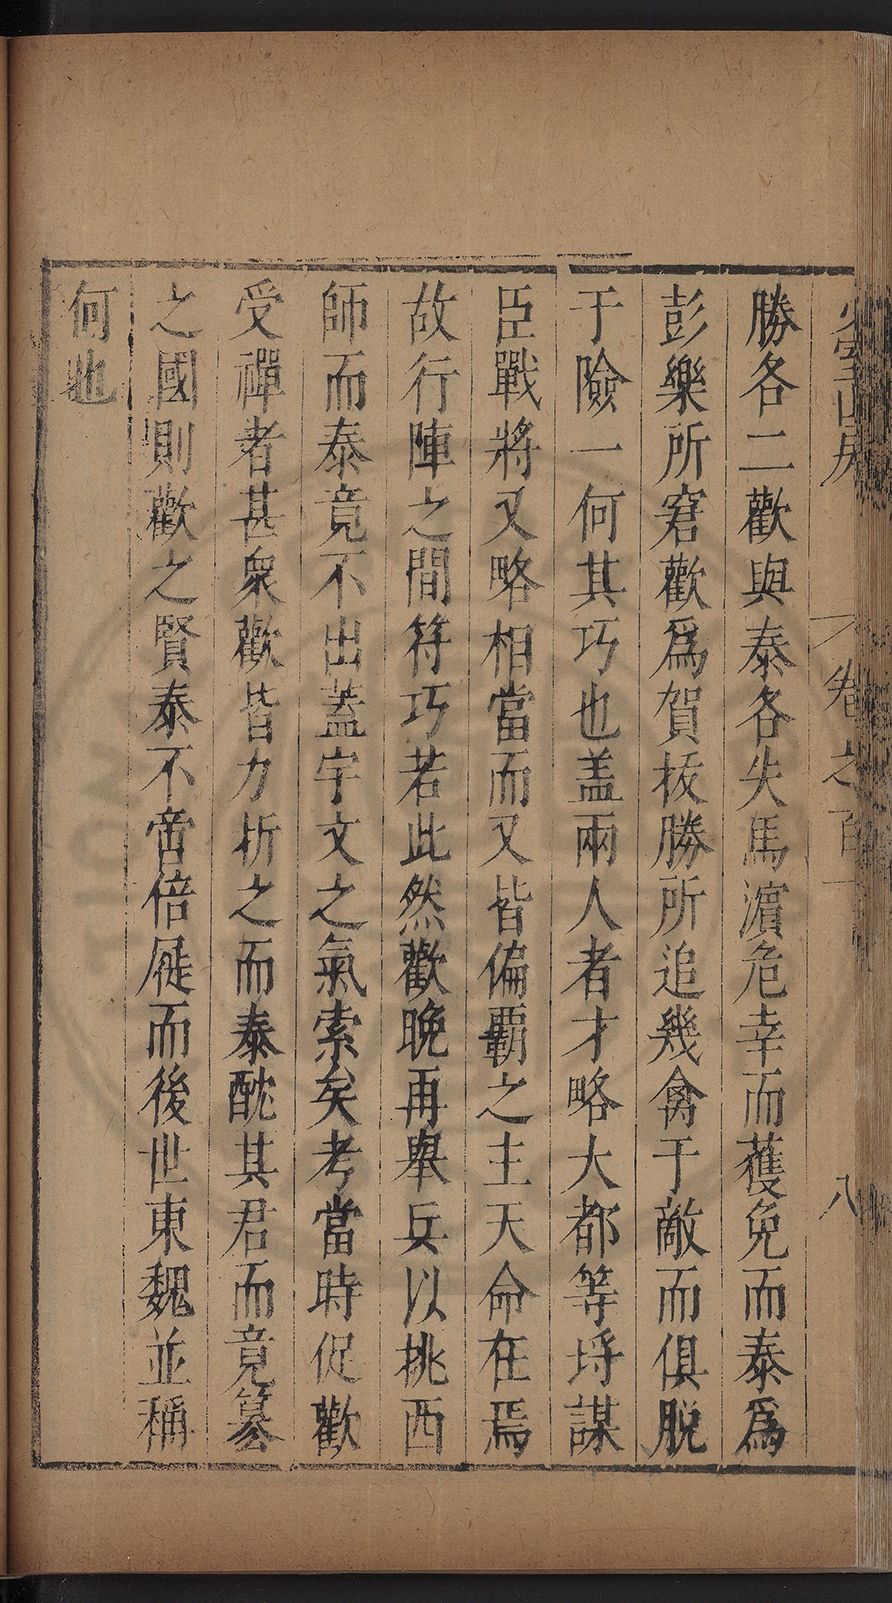 少室山房
卷之百
八
勝各二歡與泰各失馬濵危幸而獲免而泰爲
彭樂所窘歡爲賀拔勝所追幾禽于敵而俱脫
于險一何其巧也盖兩人者才略大都等埓謀
臣戰將又略相當而又皆偏覇之主天命在焉
故行陣之間符巧若此然歡晚再舉兵以挑西
師而泰竟不出蓋宇文之氣索矣考當時促歡
受禪者甚衆歡皆力折之而泰酖其君而竟簒
之國則歡之賢泰不啻倍蓰而後世東魏並稱
何也